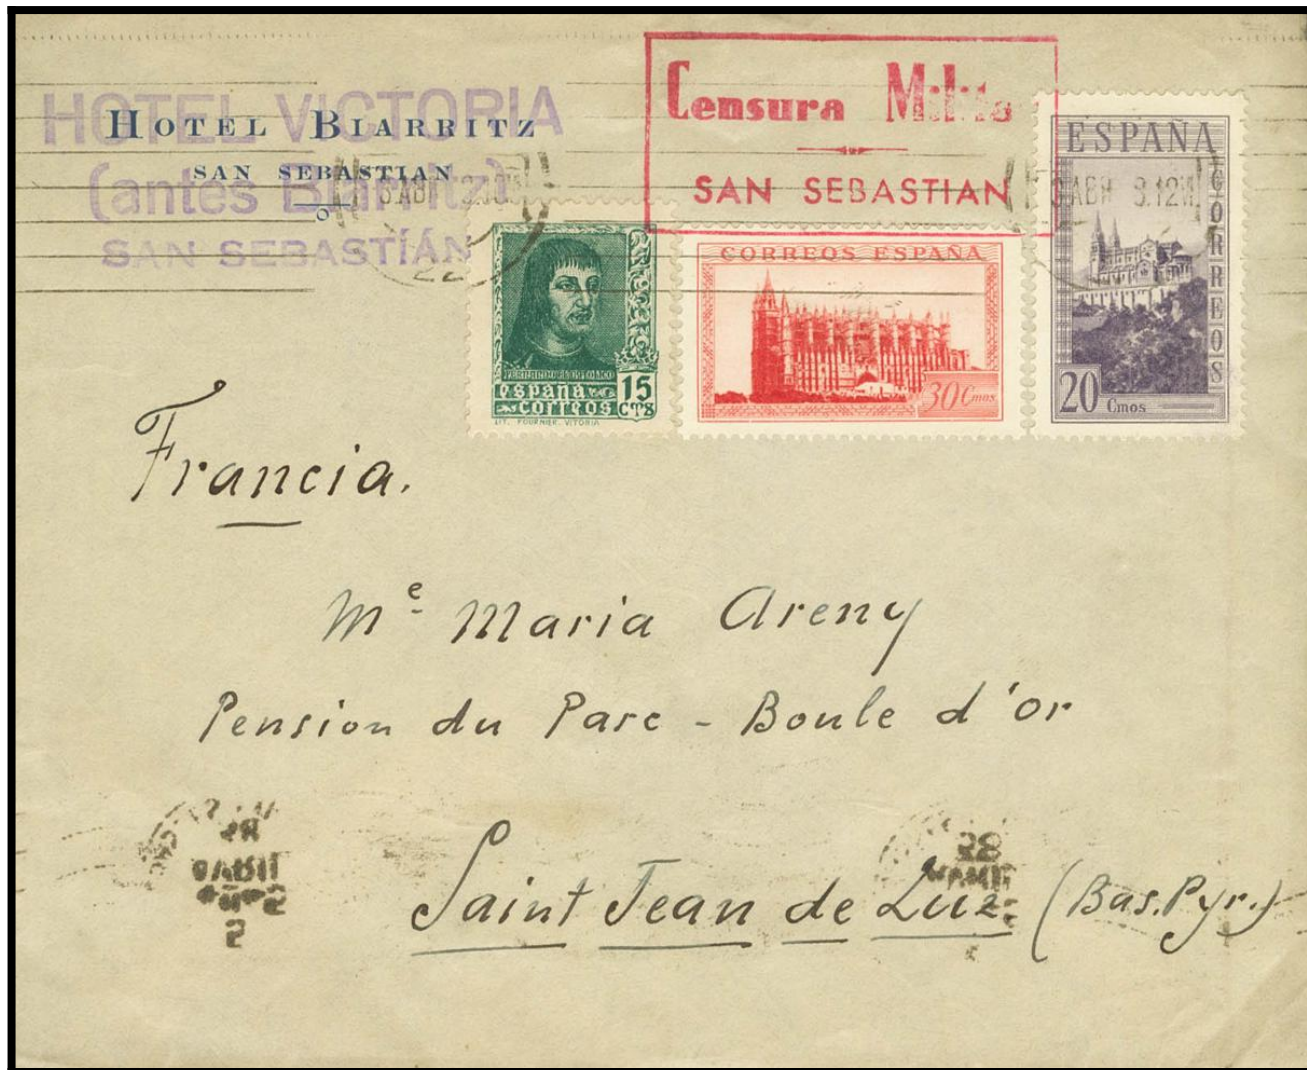 HOTEL VICTORIA
(antes Biarritz)
SAN SEBASTÍAN
HOTEL BIARRITZ
SAN SEBASTIAN
Censura
SAN SEBASTIAN
FERNANDO EL CATOLICO
españa
correos
15
CTS
LIT. FOURNIER. VITORIA
CORREOS ESPAÑA
30 Cmos
ESPAÑA
CORREOS
20 Cmos
Francia.
Me Maria Areny
Pension du Parc - Boule d'or
Saint Jean de Luz (Bas.Pyr.)